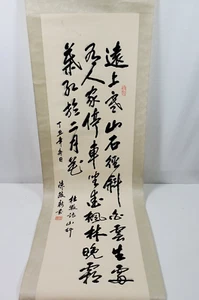 遠上寒山石徑斜白雲生處
有人家停車坐愛楓林晚霜
葉紅於二月花
杜牧詩山行
丁丑年